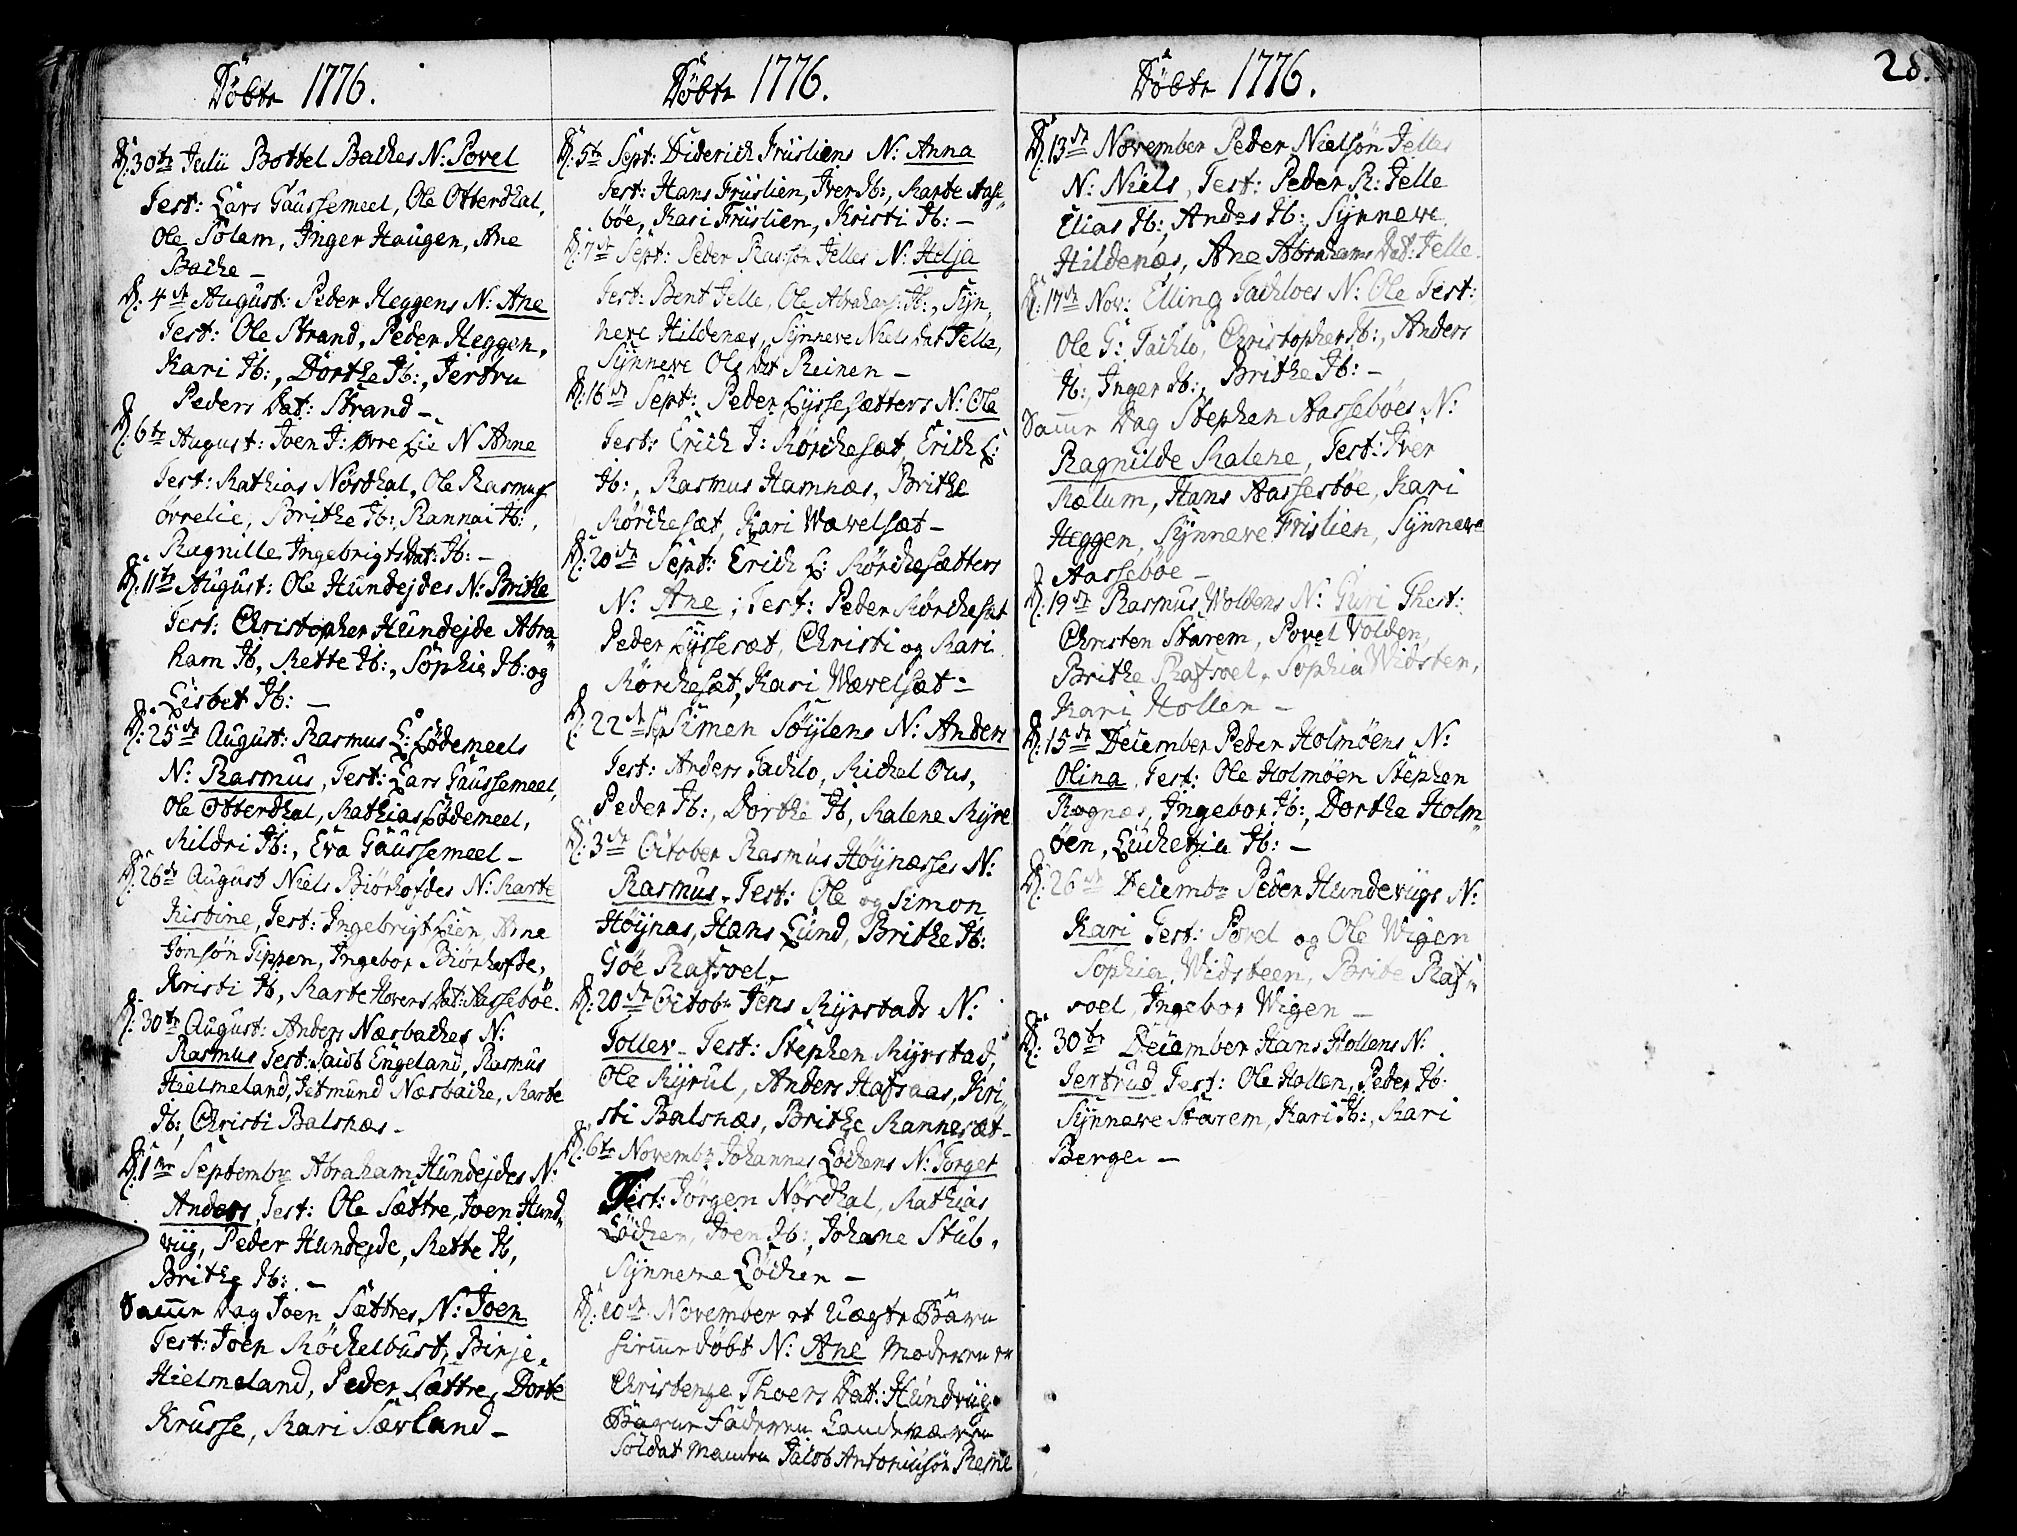 Döbte 1776.
D: 30te Julii Bottel Baches N: Povel
Test: Lars Gaussemeel, Ole Otterdhal,
Ole Solem, Inger Haugen, Ane
Bache —
D: 4de August: Peder Heggens N: Ane
Test: Ole Strand, Peder Heggen,
Kari Ib:, Dorthe Ib:, Jertru
Peders Dat: Strand —
D: 6te August: Joen J: Øvre Lie N Anne
Test: Mathias Nordhal, Ole Rasmus
Øvrelie, Brithe Ib: Rannai Ib:,
Ragnille Ingebrigts Dat: Ib: —
D: 11te August: Ole Hundejdes N: Brithe
Test: Christopher Hundejde Abra
ham Ib, Mette Ib:, Sophia Ib: og
Lisbet Ib: —
D: 25de August: Rasmus L: Lödemeels
N: Rasmus, Test: Lars Gaussemeel,
Ole Otterdhal, Mathias Lödemeel,
Mildri Ib:, Eva Gaussemeel —
D: 26de August Niels Biörhofdes N: Marte
Kistine, Test: Ingebrigt Lien, Arne
Jonsön Tippen, Ingebor Biörhofde,
Kristi Ib, Marte Hovens Dat: Aassebøe.
D: 30te August: Anders Næsbaches N:
Rasmus Test: Jacob Engeland, Rasmus
Hielmeland, Jetmund Næsbache, Marte
Ib; Christi Balsnæs —
D: 1me Septembr Abraham Hundejdes N:
Anders, Test: Ole Sættre, Joen Hund
viig, Peder Hundejde, Mette Ib,
Brithe Ib: —
Samme Dag Joen Sættres N: Joen
Test: Joen Röchelbust, Birje
Hielmeland, Peder Sættre, Dorte
Krusse, Kari Sævland —
Döbte 1776.
D: 5te Sept: Diderich Frusliens N: Anna
Test: Hans Fruslien, Iver Ib:, Marte Aase
bøe, Kari Fruslien, Kristi Ib: —
D: 7de Sept: Peder Ras:sön Jelles N: Helja
Test: Bent Jelle, Ole Abrahas: Ib:, Syn
neve Hildenæs, Synneve Niels dat Jelle,
Synneve Ols dat Reinen —
D: 16de Sept: Peder Lyssesætters N: Ole
Test: Erich J: Mörchesæt, Erich L:
Ib:, Rasmus Hamnæs, Brithe
Mörchesæt, Kari Wævelsæt —
D: 20de Sept: Erich L: Mörchesætters
N: Ane; Test: Peder Mörchesæt
Peder Lyssesæt, Christi og Mari
Mörchesæt, Kari Wævelsæt —
D: 22de Sep Simen Söylens N: Anders
Test: Anders Tachlo, Michel Ous,
Peder Ib:, Dorthe Ib, Malene Myre
D: 3de October Rasmus Höynæsses N:
Rasmus. Test: Ole og Simon
Höynæs, Hans Lund, Brithe Ib:
Goe Rafsoel —
D: 20de Octobr Jens Myrstads N:
Tollev — Test: Stephen Myrstad,
Ole Myrul, Anders Hafsaas, Kri
sti Balsnæs, Brithe Mannesæt —
D: 6te Novembr Johannes Löchens N: Torget
Test: Jörgen Nördhal, Mathias
Löchen, Joen Ib:, Johane Stub,
Synneve Löchen —
D: 10de November et uægte Barn
hieme döbt N: Ane Moderen er
Christenze Thoers Dat: Hundviig.
Barne Faderen Landeværn
Soldat Manden Jacob Antonisön Remë
Döbte 1776.
28.
D: 13de November Peder Nielsön Jelles
N: Niels, Test: Peder R: Jelle
Elias Ib:, Andes Ib:, Synneve
Hildenæs, Ane Abrahams Dat: Jelle
D: 17de Nov: Elling Tachloes N: Ole Test:
Ole G: Tachlo, Christopher Ib:, Anders
Ib:, Inger Ib:, Brithe Ib: —
Samme Dag Stephen Aassebøes N:
Ragnilde Malene, Test: Iver
Mælum, Hans Aassesbøe, Kari
Heggen, Synneve Frislien, Synneve
Aassebøe —
D: 19de Rasmus Woldens N: Guri Thest:
Christen Starem, Povel Volden,
Brithe Rafsoel, Sophia Widsten,
Kari Hollen —
D: 15de December Peder Holmöens N:
Olina, Test: Ole Holmöen Stephen
Rognæs, Ingebor Ib:, Dorthe Holm
öen, Luchetzia Ib: —
D: 26de Decembr Peder Hundeviigs N:
Kari Test: Povel og Ole Wigen
Sophia Widsteen, Brite Raf
soel, Ingebor Wigen —
D: 30te December Hans Hollens N:
Jertrud Test: Ole Hollen, Peder Ib:
Synneve Starem, Kari Ib:, Mari
Berge. —